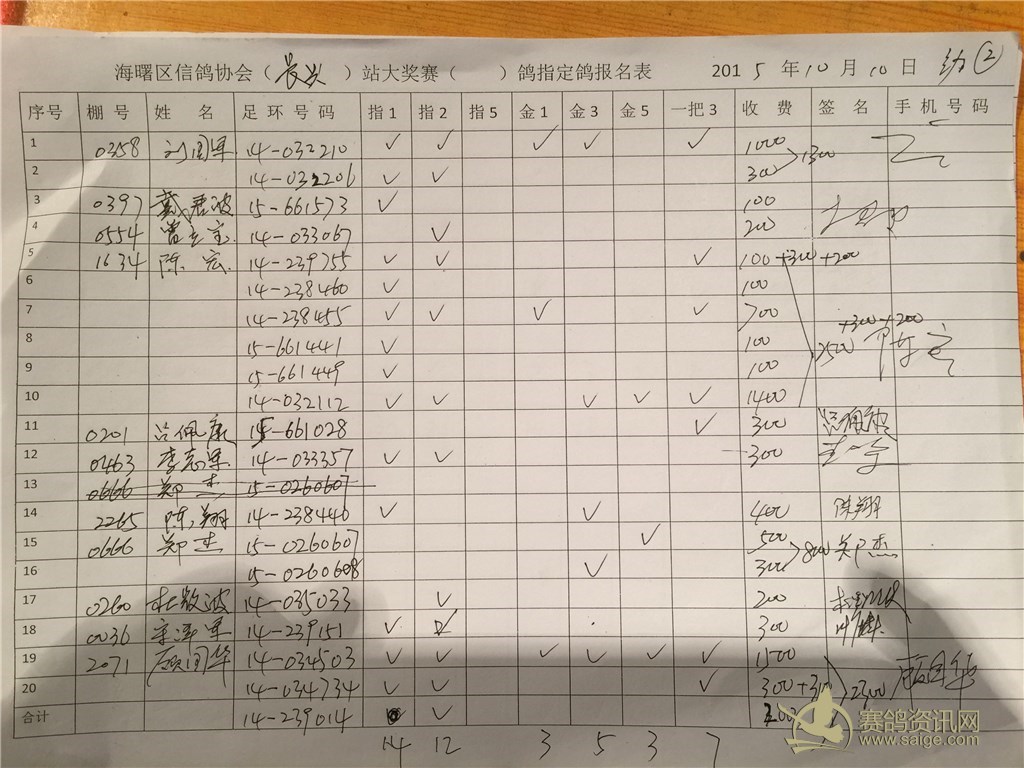 海曙区信鸽协会（长兴）站大奖赛（ ）鸽指定鸽报名表 2015年10月10日 ②
序号 棚号 姓名 足环号码 指1 指2 指5 金1 金3 金5 一把3 收费 签名 手机号码
1 0358 刘国军 14-032210 ✓ ✓ ✓ ✓ ✓ 1000
2 14-032206 ✓ ✓ 300 >1300
3 0397 戴君波 15-661573 ✓ 100
4 0554 14-033067 ✓ 200
5 1634 陈宏 14-239755 ✓ ✓ ✓ 100+300+200
6 14-238460 ✓ 100
7 14-238455 ✓ ✓ ✓ ✓ 700 +300+200
8 15-661441 ✓ 100 2500
9 15-661449 ✓ 100
10 14-032112 ✓ ✓ ✓ ✓ ✓ 1400
11 0201 15-661028 ✓ 300
12 0463 李志军 14-033357 ✓ ✓ 300
13 0666 郑杰 15-0260607
14 2265 陈翔 14-238446 ✓ ✓ 400 陈翔
15 0666 郑杰 15-0260607 ✓ 500
16 15-0260608 ✓ 300 >800 郑杰
17 0260 杜敏波 14-035033 ✓ 200
18 0036 14-239151 ✓ ✓ 300
19 2071 顾国华 14-034503 ✓ ✓ ✓ ✓ ✓ ✓ 1500
20 14-034734 ✓ ✓ ✓ 300+300 2300 顾国华
合计 14-239014 ✓ 200
14 12 3 5 3 7
赛鸽资讯网
www.saige.com